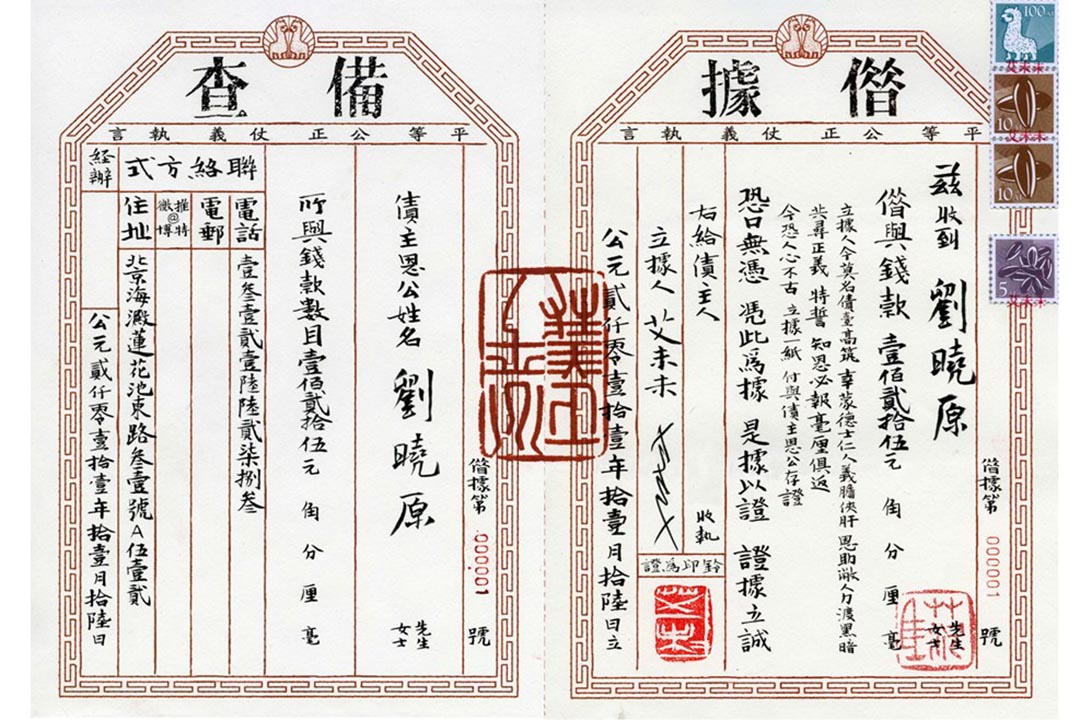 借據
平等公正仗義執言
借據第 000001 號
茲收到 劉曉原 先生 女士
借與錢款 壹佰貳拾伍元 角 分 厘 毫
立據人今莫名債臺高筑 幸蒙德士仁人義膽俠肝 恩助敝人力渡黑暗
共尋正義 特誓 知恩必報毫厘俱返
今恐人心不古 立據一紙 付與債主恩公存證
恐口無憑 憑此爲據 是據以證 證據立誠
右給債主人 收執
立據人 艾未未
鈐印爲證
公元貳仟零壹拾壹年拾壹月拾陸日立
100
艾未未
10
艾未未
10
5
艾未未
備查
平等公正仗義執言
借據第 000001 號
債主恩公姓名 劉曉原 先生 女士
所與錢款數目壹佰貳拾伍元 角 分 厘 毫
聯絡方式
電話 壹叁壹貳壹陸陸貳柒捌叁
電郵
推特@微博
住址 北京海澱蓮花池東路叁壹號A伍壹貳
經辦
公元貳仟零壹拾壹年拾壹月拾陸日